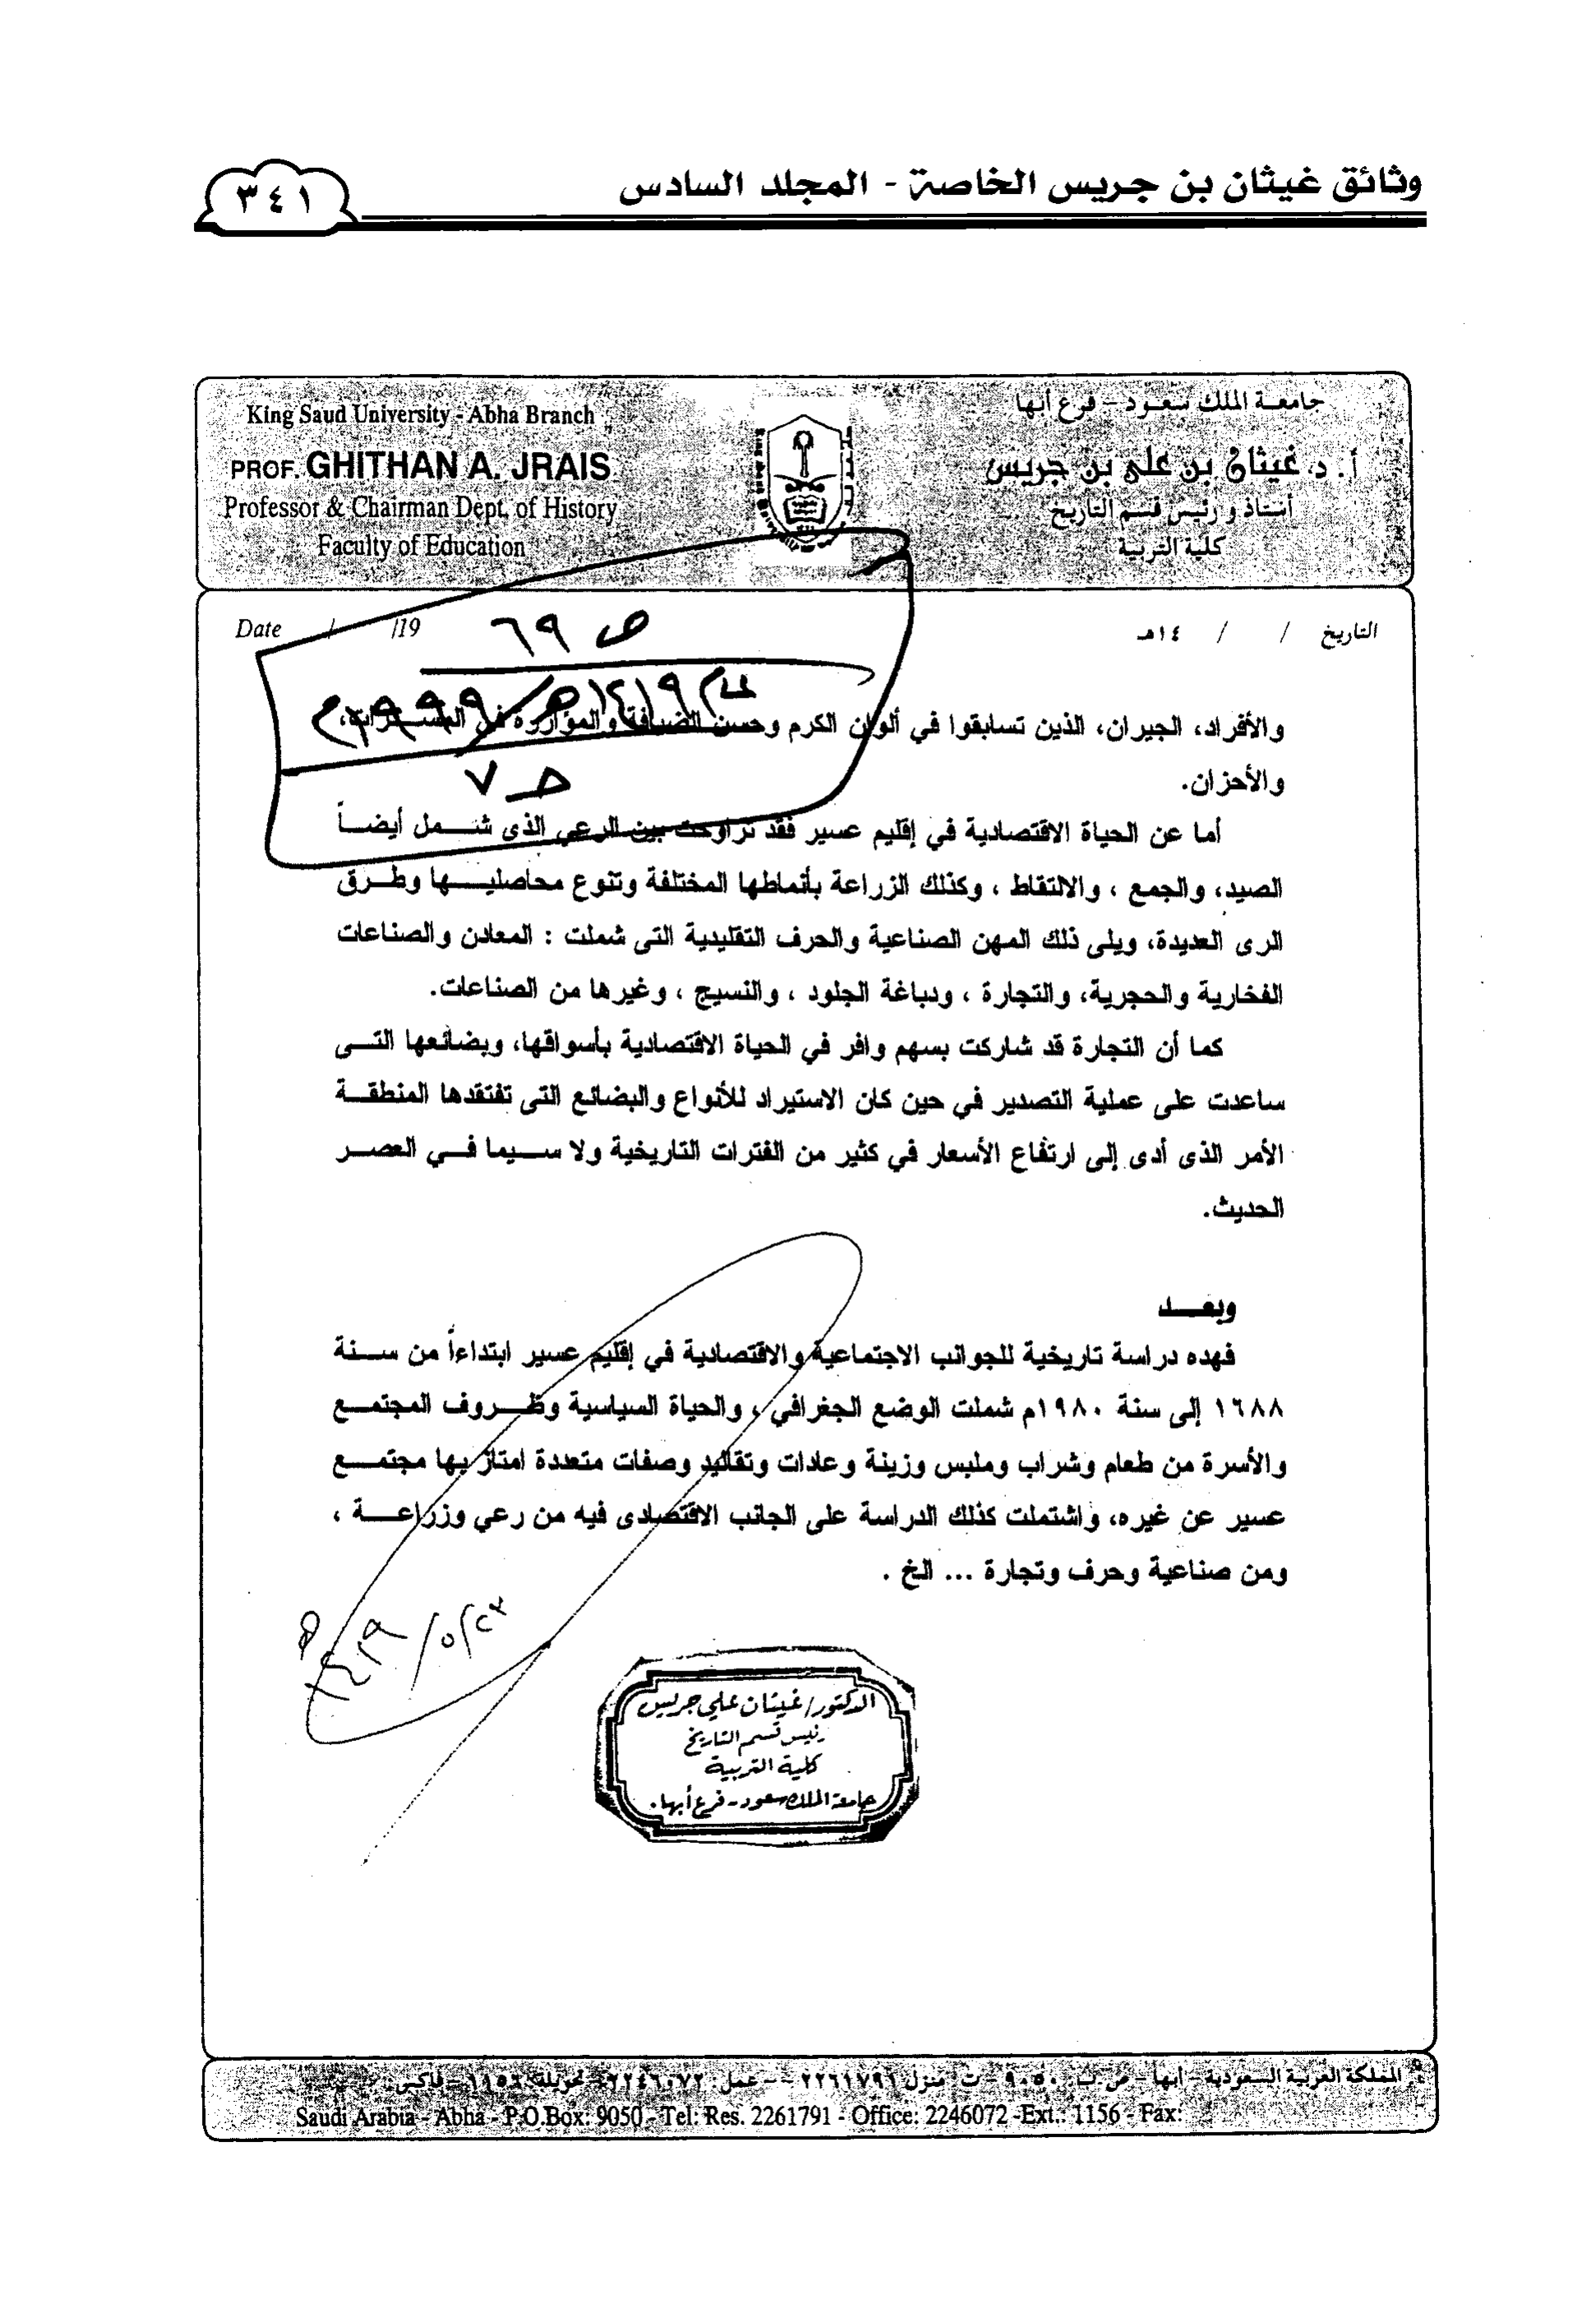 وثائق غيثان بن جريس الخاصة - المجلد السادس
٣٤١
جامعة الملك سعود - فرع أبها
أ. د. غيثان بن على بن جريس
أستاذ و رئيس قسم التاريخ
كلية التربية
King Saud University - Abha Branch
PROF. GHITHAN A. JRAIS
Professor & Chairman Dept. of History
Faculty of Education
التاريخ / / ١٤هـ
Date / /19
ص ٦٩
١٤١٩هـ/١٩٩٩م
حـ ٧
والأفراد، الجيران، الذين تسابقوا في ألوان الكرم وحسن الضيافة والمؤازرة في
والأحزان.
أما عن الحياة الاقتصادية في إقليم عسير فقد تراوحت بين الرعي الذى شمل أيضاً
الصيد، والجمع ، والالتقاط ، وكذلك الزراعة بأنماطها المختلفة وتنوع محاصليها وطرق
الرى العديدة، ويلى ذلك المهن الصناعية والحرف التقليدية التى شملت : المعادن والصناعات
الفخارية والحجرية، والتجارة ، ودباغة الجلود ، والنسيج ، وغيرها من الصناعات.
كما أن التجارة قد شاركت بسهم وافر في الحياة الاقتصادية بأسواقها، وبضائعها التى
ساعدت على عملية التصدير في حين كان الاستيراد للأنواع والبضائع التى تفتقدها المنطقة
الأمر الذى أدى إلى ارتفاع الأسعار في كثير من الفترات التاريخية ولا سيما في العصر
الحديث.
وبعد
فهده دراسة تاريخية للجوانب الاجتماعية والاقتصادية في إقليم عسير ابتداءاً من سنة
١٦٨٨ إلى سنة ١٩٨٠م شملت الوضع الجغرافي ، والحياة السياسية وظروف المجتمع
والأسرة من طعام وشراب وملبس وزينة وعادات وتقاليد وصفات متعددة امتاز بها مجتمع
عسير عن غيره، واشتملت كذلك الدراسة على الجانب الاقتصادى فيه من رعي وزراعة ،
ومن صناعية وحرف وتجارة ... الخ .
الدكتور/ غيثان علي جريس
رئيس قسم التاريخ
كلية التربية
جامعة الملك سعود - فرع أبها.
المملكة العربية السعودية - أبها - ص ب: ٩٠٥٠ - ت منزل ٢٢٦١٧٩١ - عمل: ٢٢٤٦٠٧٢ - تحويلة: ١١٥٦ - فاكس:
Saudi Arabia - Abha - P.O.Box: 9050 - Tel: Res. 2261791 - Office: 2246072 -Ext.: 1156 - Fax: